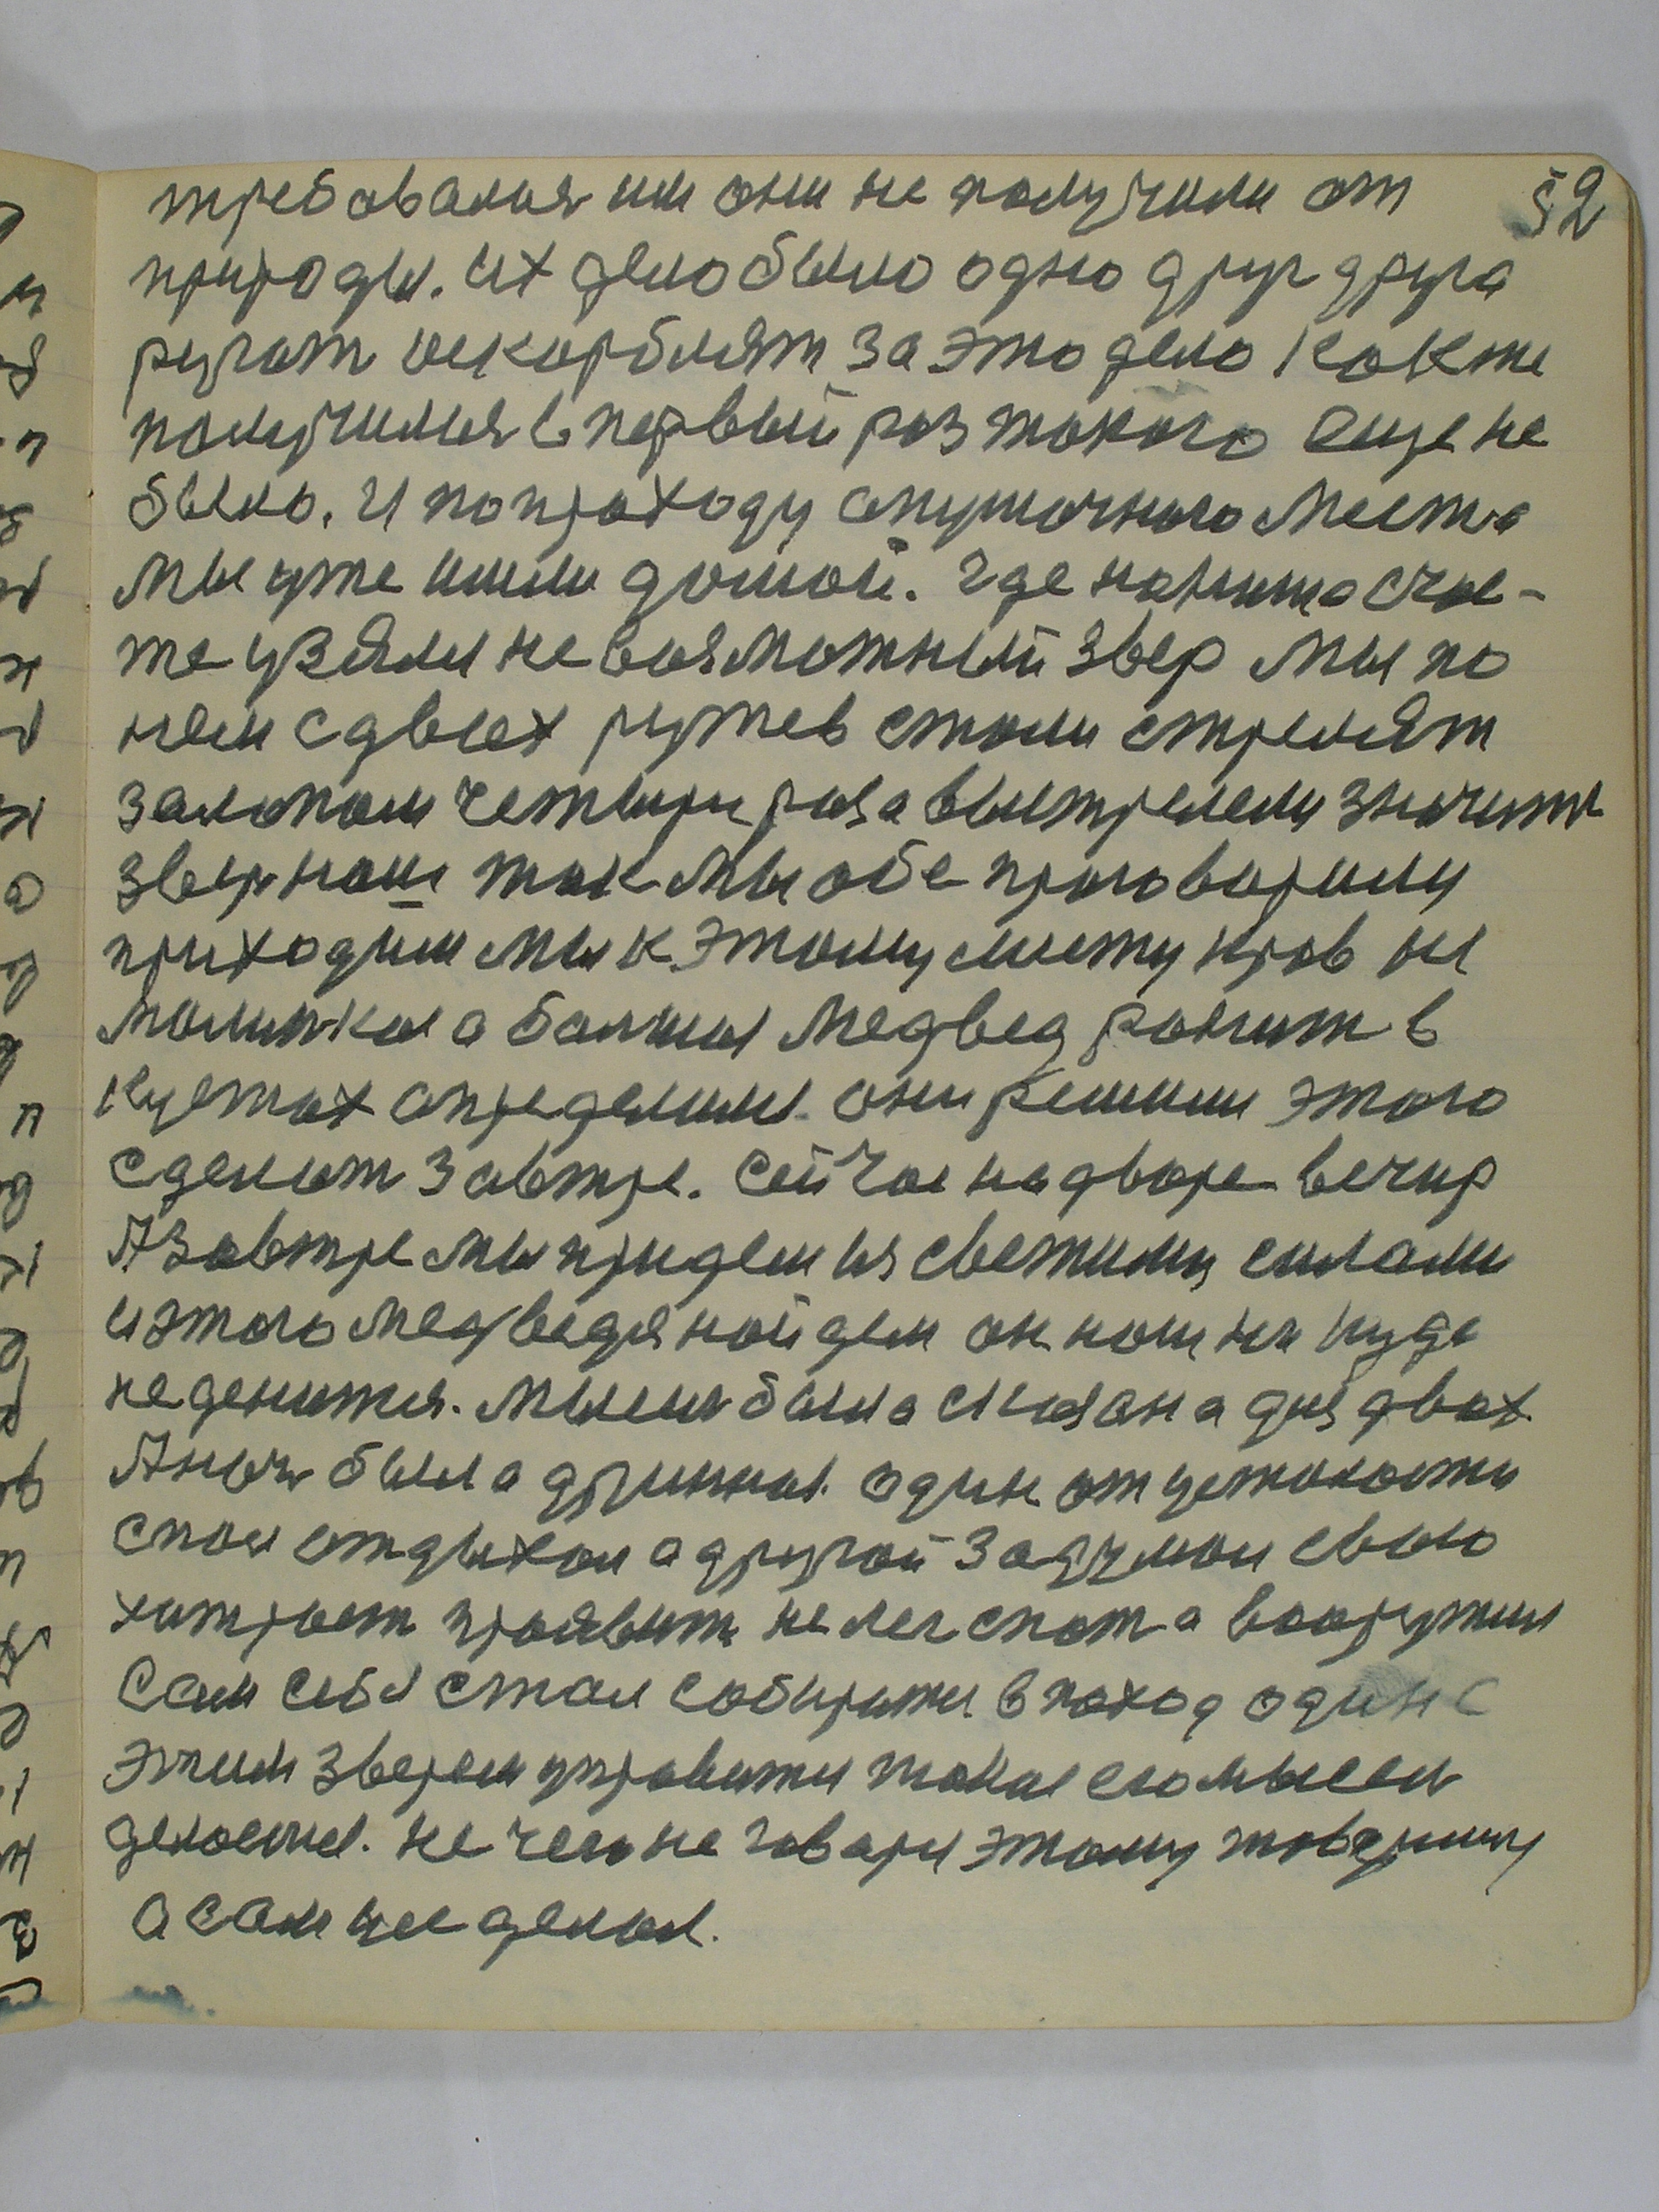 52
требовалия им они не получили от
природы. Их дело было одно друг друга
ругат искорблят за это дело Как же
получилия в первый раз такого еще не
было. И по проходу опушочного Места
мы уже шли домой. Где
же узяли не возможный звер мы по
нем с двоех ружев стали стрелят
залопом четыри раза выстрелели значить
звер наш так мы обе проговорили
приходим мы к этому мисту кров не
малинкая а болшая Медвед ранит в
кустах определили они решили этого
сделат Завтре. Сейчас на дворе вечир
А Завтре мы придем из свежими силами
и этого Медведя найдем он наш ни куда
не денится. Мысля была сказана для двох
Аночь была длинная один от усталости
спал отдыхал а другой задумал свою
хитрост проявить не лег спат а вооружил
Сам себя стал собиратся в поход один с
этим зверем управится такая его мысел
делаится. не чего не говаря этому товарищу
а сам усе делал.